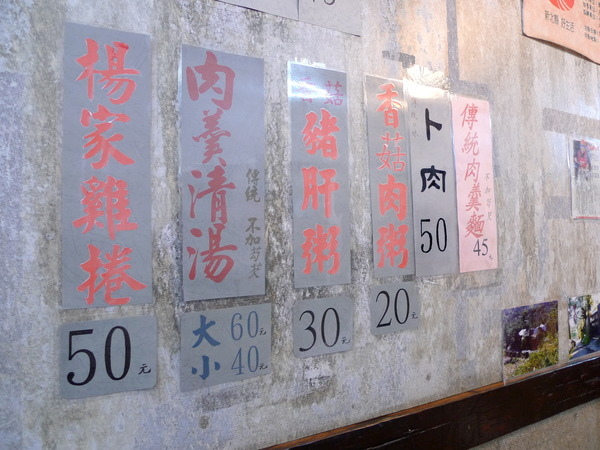 楊家雞捲
50元
肉羹清湯
傳統 不加芡
大 60元
小 40元
香菇
豬肝粥
30元
香菇肉粥
20元
卜肉
50
傳統肉羹麵
45元
新北縣 好生活